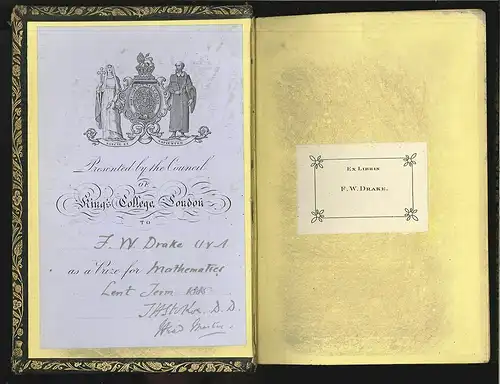 Presented by the Council
OF
King's College, London
TO
F. W. Drake
as a Prize for Mathematics
Lent Term 1885
D. D.
Head Master.
EX LIBRIS
F. W. DRAKE.